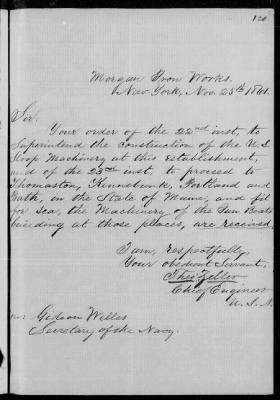 120
Morgan Iron Works.
New-York, Nov. 25th 1861.
Sir:
Your order of the 22nd inst, to
Superintend the construction of the U.S.
Sloop Machinery at this Establishment,
and of the 23rd inst, to proceed to
Thomaston, Kennebunk, Portland and
Bath, in the State of Maine, and fit
for sea, the Machinery of the Gun Boats
building at those places, are received.
I am, respectfully,
Your obedient Servant,
Theo Zeller
Chief Engineer
U.S.N.
Gideon Welles
Secretary of the Navy.